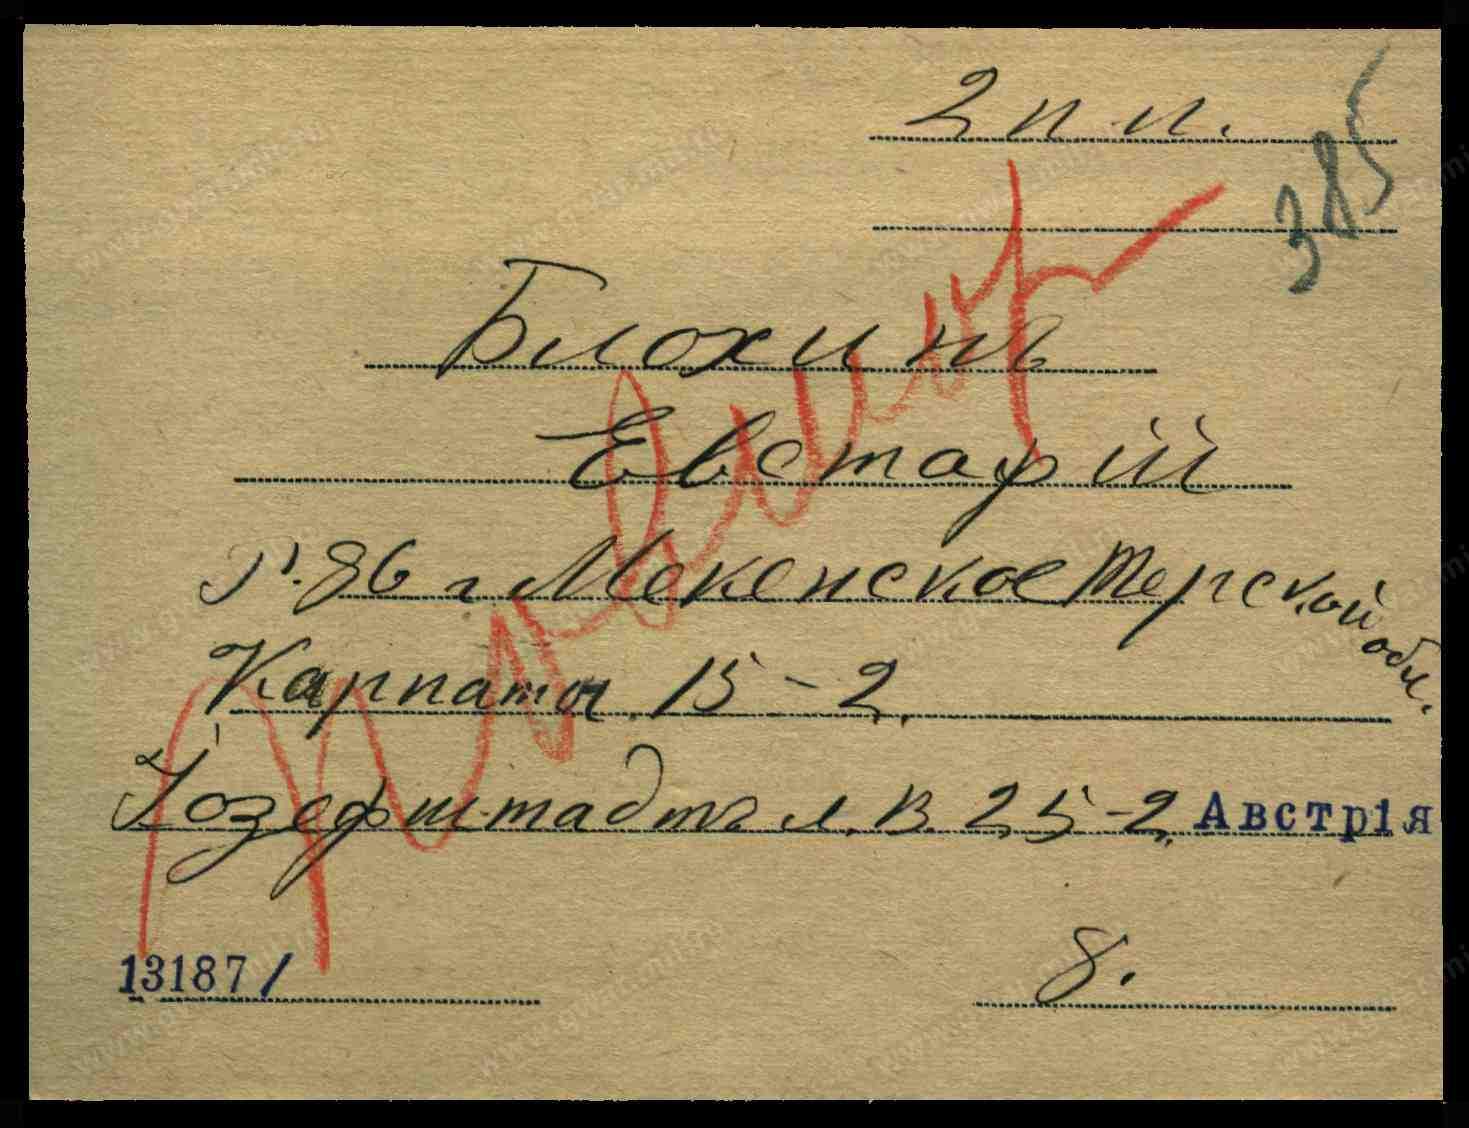 2 п п.
385
Блохинъ
Евстафій
р. 86 г Мекенское Терской обл.
Карпаты 15-2.
Іозефштадтъ л. в. 25-2. Австрія
13187/
8.